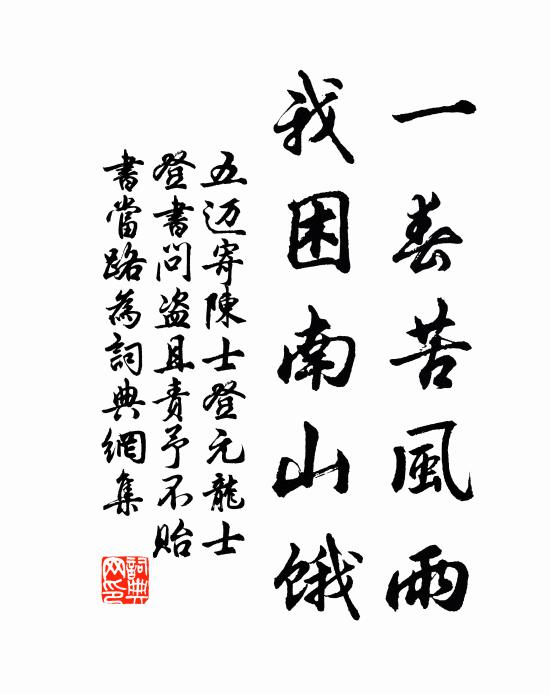 一春苦風雨
我困南山餓
五迈寄陳士登元龍士
登書問盗且責予不貽
書當路為詞典網集
詞典网印